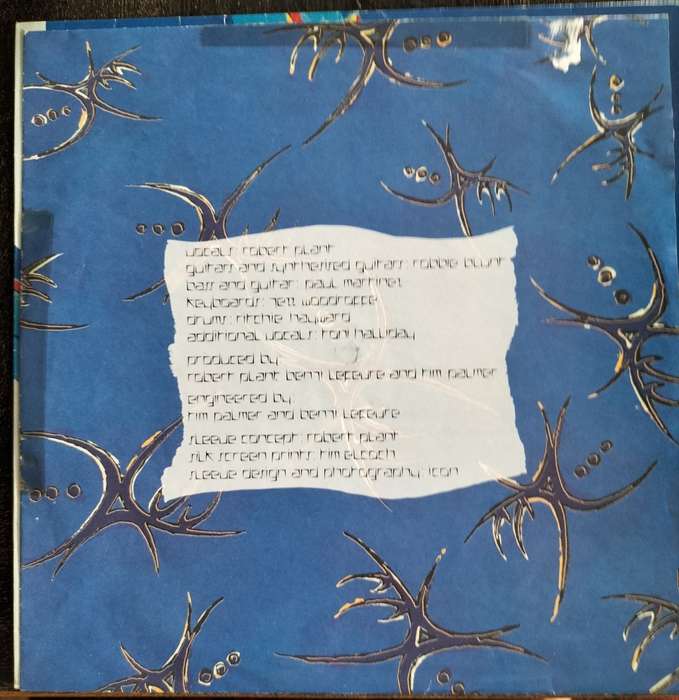 vocals: robert plant
guitars and synthesized guitars: robbie blunt
bass and guitar: paul martinez
keyboards: jezz woodroffe
drums: ritchie hayward
additional vocals: toni halliday
produced by:
robert plant benji lefevre and tim palmer
engineered by
tim palmer and benji lefevre
sleeve concept: robert plant
silk screen prints: tim elcoch
sleeve design and photography: icon